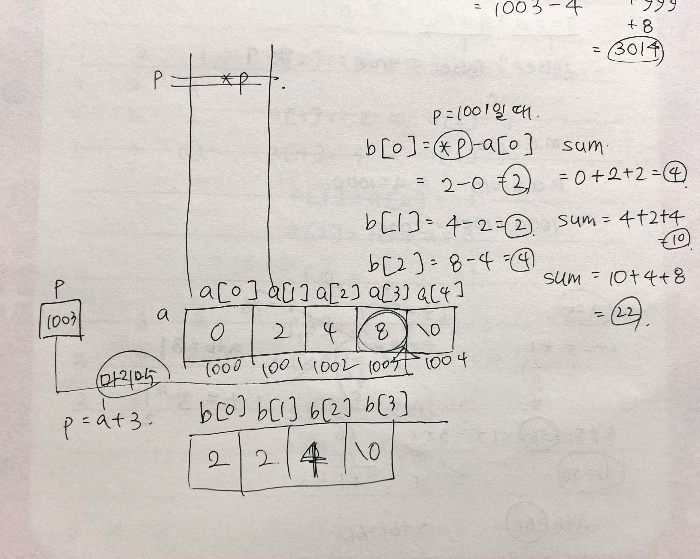 = 1003-4
+999
+8
= 3014
P *p
P=1001일 때.
b[0] = *p-a[0] sum.
= 2-0 = 2 = 0+2+2 = 4
b[1] = 4-2 = 2 sum = 4+2+4
= 10
b[2] = 8-4 = 4
sum = 10+4+8
= 22.
P
1003
a[0] a[1] a[2] a[3] a[4]
a 0 2 4 8 \0
1000 1001 1002 1003 1004
p = a+3.
b[0] b[1] b[2] b[3]
2 2 4 \0